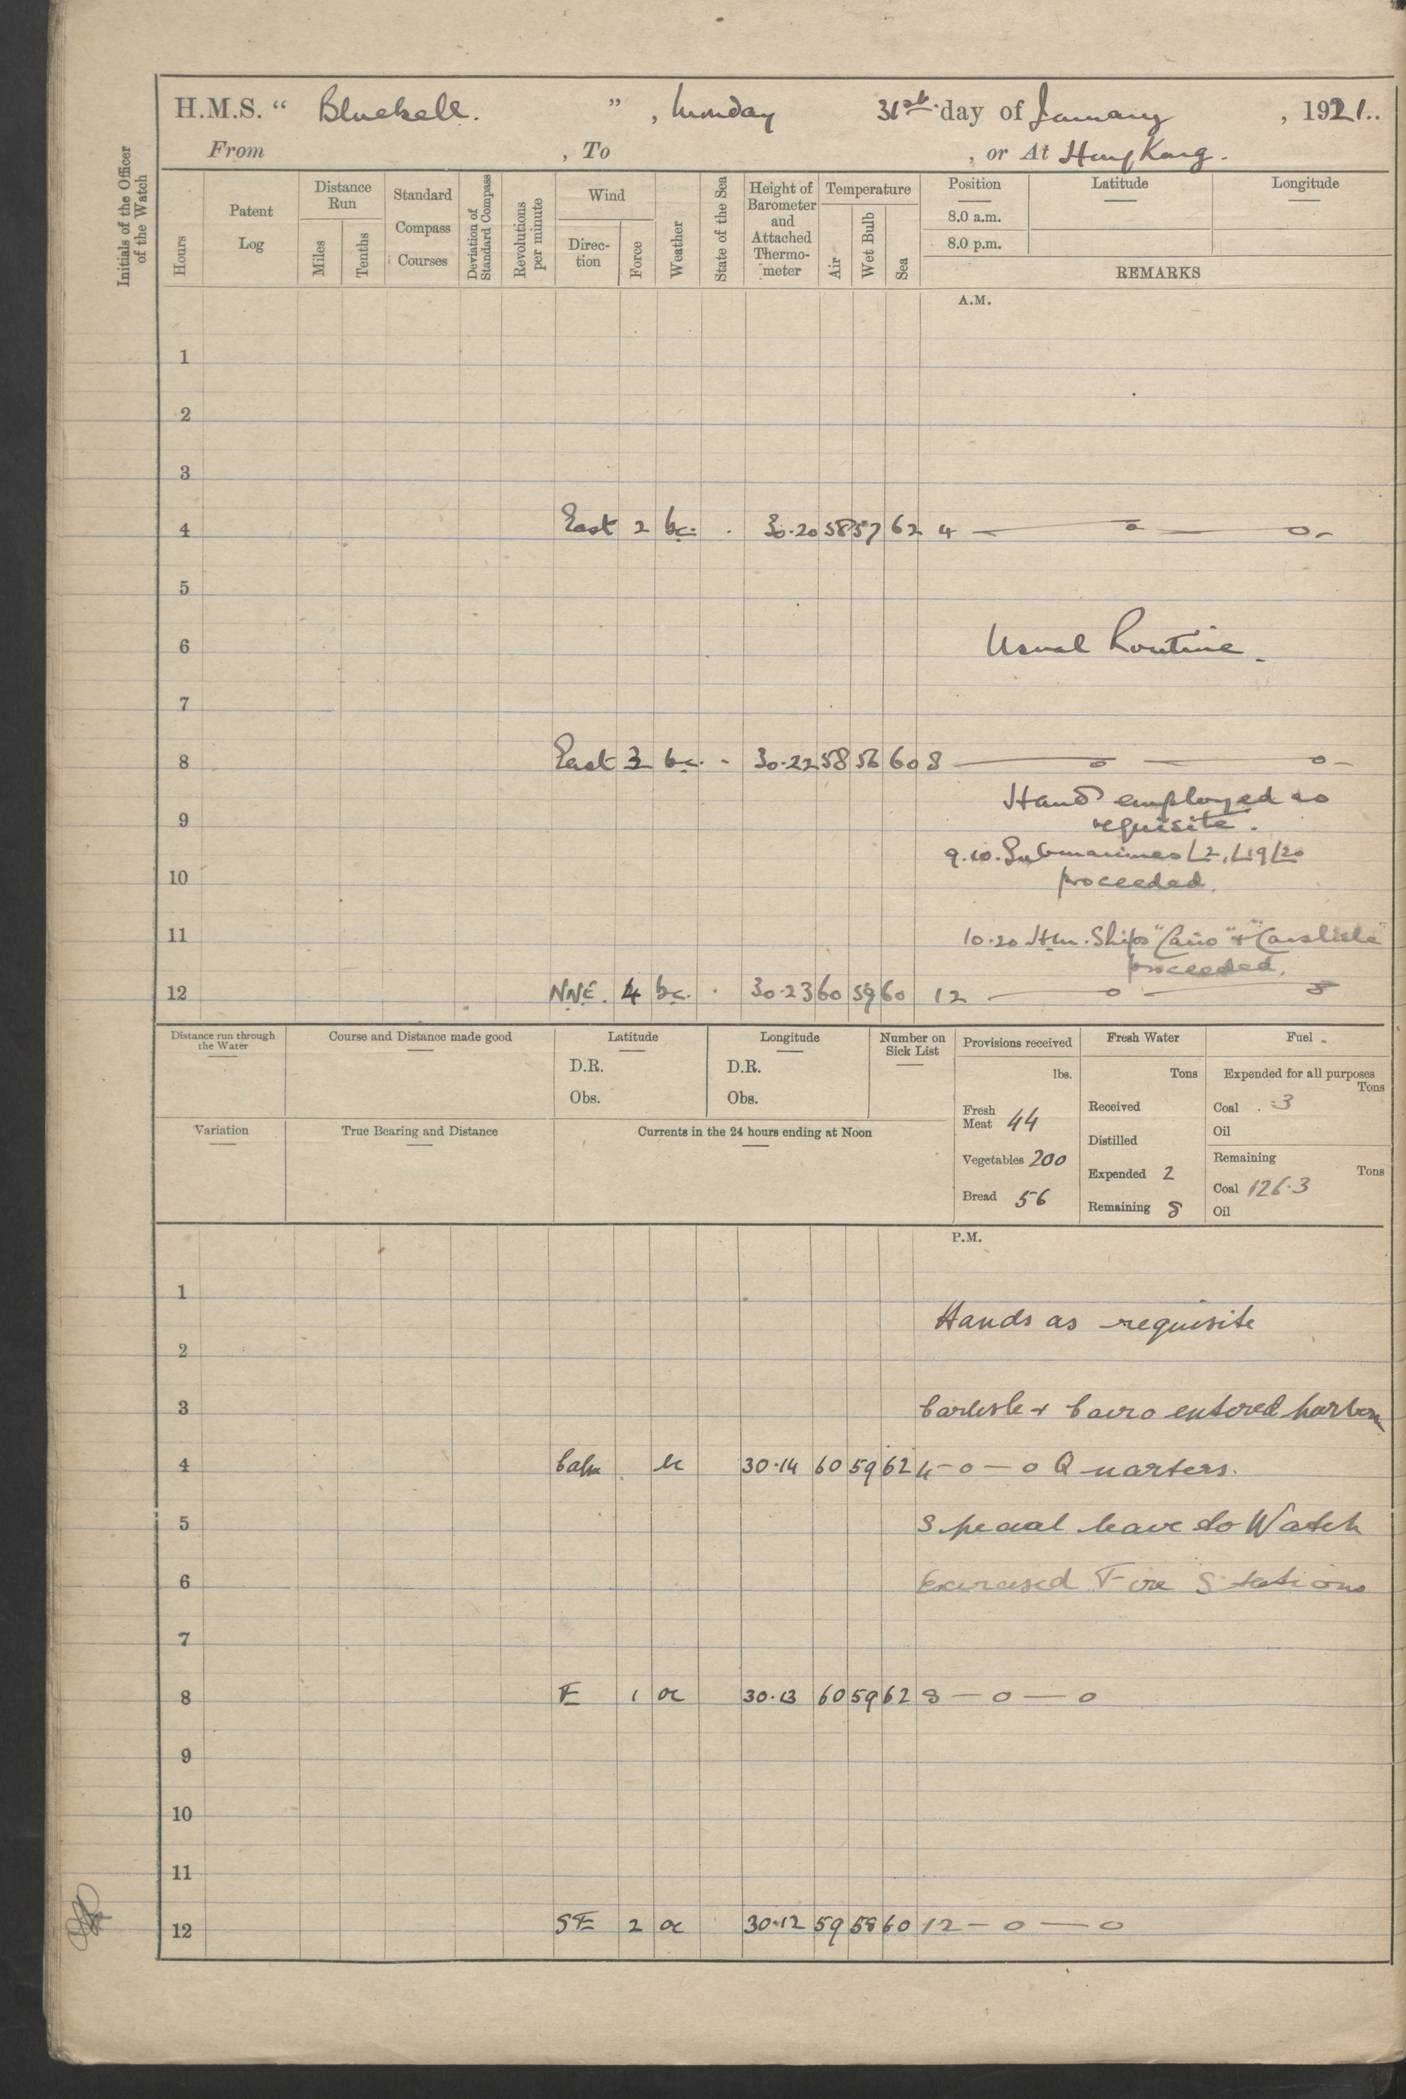 H.M.S. “ Bluebell. ” , Monday 31st day of January , 1921..
From , To , or At Hong Kong.
Initials of the Officer of the Watch
Hours
Patent Log
Distance Run
Miles Tenths
Standard Compass Courses
Deviation of Standard Compass
Revolutions per minute
Wind
Direc-tion Force
Weather
State of the Sea
Height of Barometer and Attached Thermo-meter
Temperature
Air Wet Bulb Sea
Position Latitude Longitude
8.0 a.m.
8.0 p.m.
REMARKS
A.M.
1
2
3
4 East 2 bc. . 30.20 58 57 62 4 — o — o -
5
6 Usual Routine.
7
8 East 3 bc. - 30.22 58 56 60 8 — o — o -
Hands employed as
9 requisite.
9.10. Submarines L2, L19 L20
10 proceeded.
11 10.20 H.M. Ships "Cairo" + "Carslile"
proceeded.
12 NNE. 4 bc. . 30.23 60 59 60 12 — o — o
Distance run through the Water
Course and Distance made good
Latitude
D.R.
Obs.
Longitude
D.R.
Obs.
Number on Sick List
Provisions received
lbs.
Fresh Meat 44
Vegetables 200
Bread 56
Fresh Water
Tons
Received
Distilled
Expended 2
Remaining 8
Fuel
Expended for all purposes
Tons
Coal .3
Oil
Remaining
Tons
Coal 126.3
Oil
Variation
True Bearing and Distance
Currents in the 24 hours ending at Noon
P.M.
1
Hands as requisite
2
3 Carlisle + Cairo entered harbour
4 Calm bc 30.14 60 59 62 4 - o — o Quarters.
5 Special leave to Watch
6 Exercised Fire Stations
7
8 E 1 oc 30.13 60 59 62 8 — o — o
9
10
11
12 SE 2 oc 30.12 59 58 60 12 — o — o